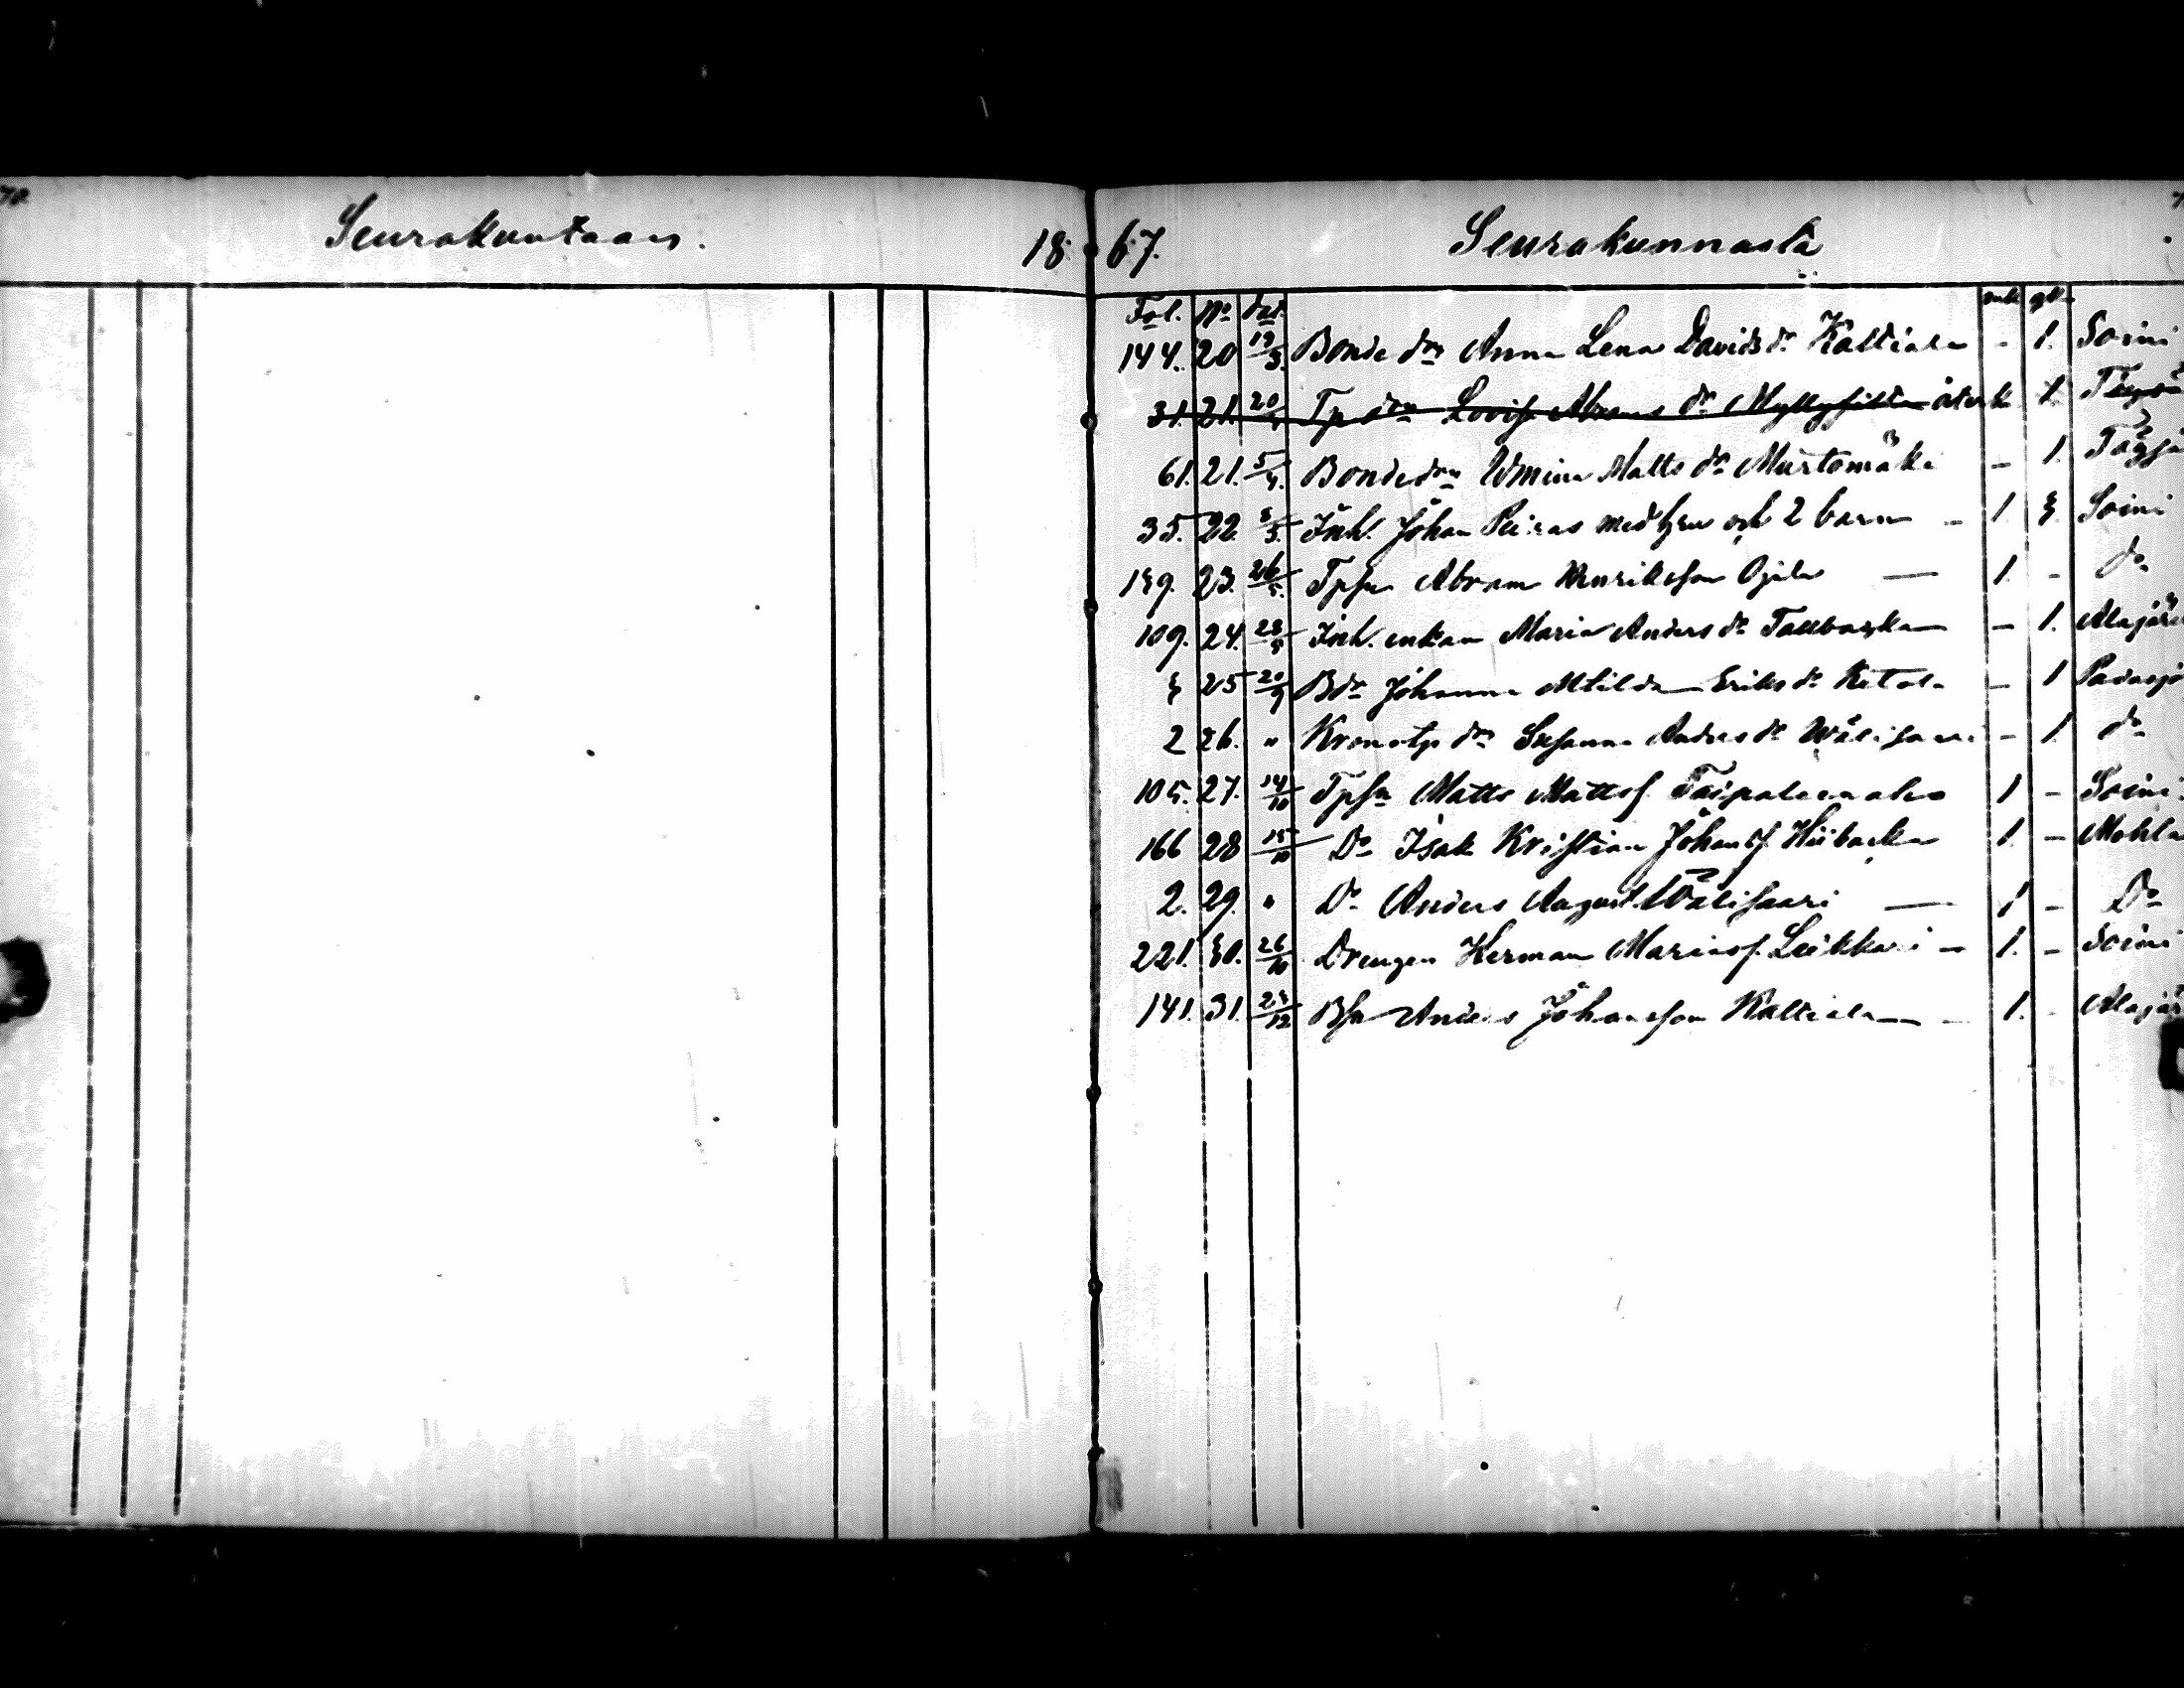 Seurakuntaan.
18 67.
Seurakunnasta
Fol. No dat. mk qk
144. 20 19/3. Bonde dr Anna Lena Davids dr Kaltiala - 1. Soini
31. 21. 20 Tp drn Lovisa Abrams dr Myllysilta återk 1.
61. 21. 5/4. Bonde drn Wmina Matts dr Murtomäki - 1.
35. 22. 3/5. Inh. Johan Peuras med hru och 2 barn - 1. 3. Soini
139. 23. 26/5. Tpsn Abram Henriksson Ojala — 1. - do
109. 24. 28/5 Inh. enkan Maria Anders dr Tallbacka - 1. Alajärv
3 25 20/9 Bdr Johanna Mtilda Eriks dr Ketola - 1 Padasjo
2 26. " Kronotp drn Susanna Anders dr Wälisaari - 1. do
105. 27. 14/10 Tpsn Matts Mattss. Taipaleenaho 1 - Soini.
166 28 15/10 Do Isak Kristian Johans s. Hiibacka 1. - Mohla
2. 29. " Do Anders August Wälisaari — 1 - Do
221. 30. 26/10 Drengen Herman Mariass. Leikkari - 1. - Soini
141. 31. 23/12 Bsn Anders Johansson Kaltiala - 1. - Alajär